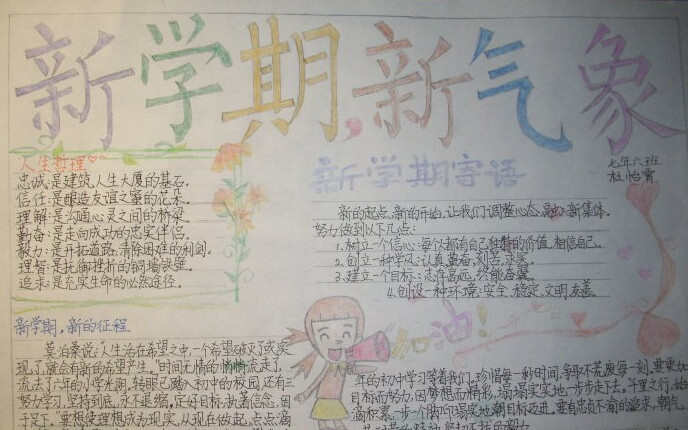 新学期,新气象
人生哲理
忠诚:是建筑人生大厦的基石。
信任:是酿造友谊之蜜的花朵。
理解:是沟通心灵之间的桥梁
勤奋:是走向成功的忠实伴侣。
毅力:是开拓道路,清除困难的利剑。
理智:是抵御挫折的铜墙铁壁。
追求:是充实生命的必然途径。
新学期寄语
七年六班
新的起点,新的开始,让我们调整心态,融入新集体。
努力做到以下几点:
1.树立一个信心:每个人都有自己独特的价值,相信自己。
2.创立一种学风:认真,勤奋,刻苦,求实。
3.建立一个目标:志存高远,终能
4.创设一种环境:安全,稳定,文明,友善。
加油!
新学期,新的征程
莫泊桑说:"人生活在希望之中,一个希望破灭了或实
现了,就会有新的希望产生。"时间无情的悄悄走走了,
流去了六年的小学光阴,转眼已融入初中的校园,还有三
努力学习,坚持到底,永不退缩,定好目标,执着信念,因
于足下。"要想使理想成为现实,从现在做起,点点滴
年的初中学习等着我们,珍惜每一秒时间,争取不荒废每一刻,要
目标而努力,因梦想而精彩,塌塌实实地一步步走下去。千里之行,始
滴积累,一步一个脚印塌实地朝目标迈进,要有忠贞不渝的追求,朝气